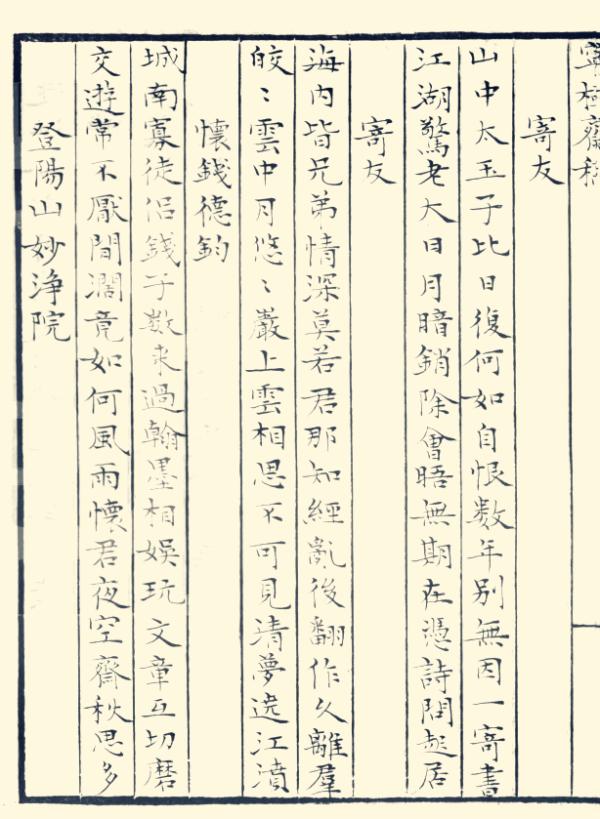 寧極齋稿
寄友
山中太玉子比日復何如自恨数年别無因一寄書
江湖驚老大日月暗銷除會晤無期在憑詩問起居
寄友
海内皆兄弟情深莫若君那知經亂後翻作久離羣
皎〻雲中月悠〻巖上雲相思不可見清夢遶江濆
懷錢德鈞
城南寡徒侣錢子数來過翰墨相娛玩文章互切磨
交遊常不厭間濶竟如何風雨懷君夜空齋秋思多
登陽山妙浄院